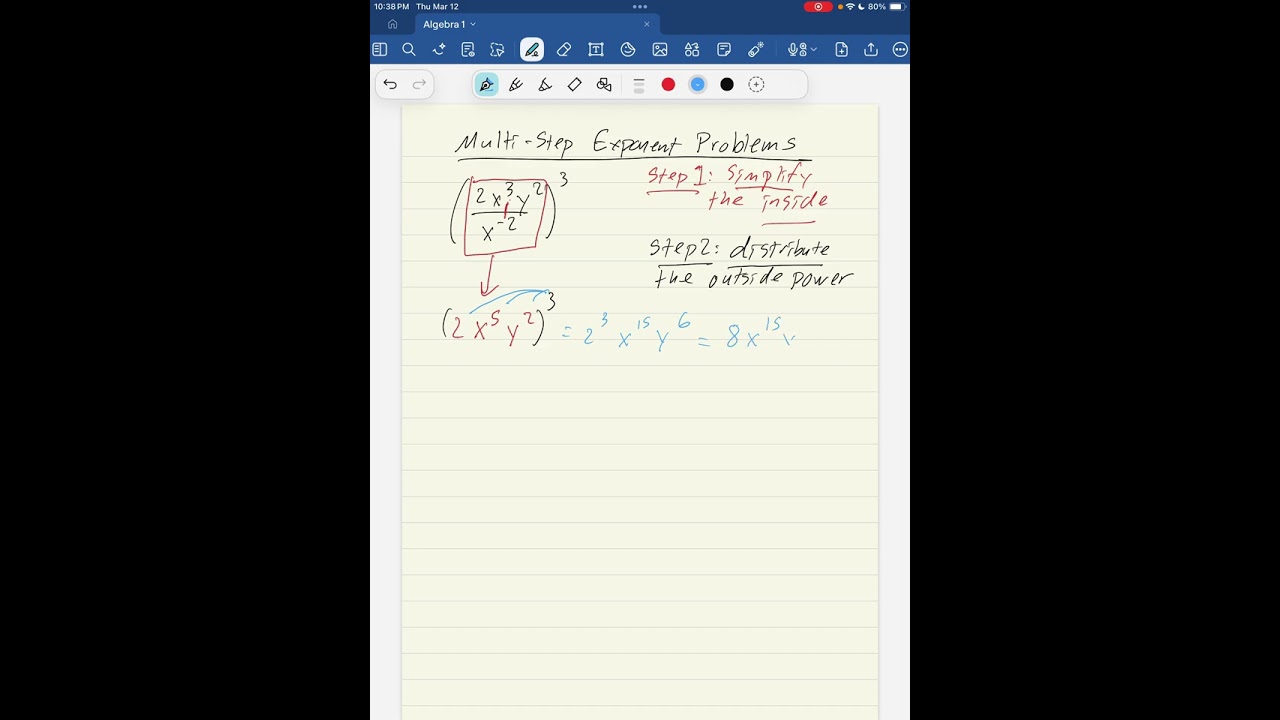 10:38 PM Thu Mar 12 80%
Algebra 1
Multi-Step Exponent Problems
(2x³y² / x⁻²)³
Step 1: Simplify
the inside
Step 2: distribute
the outside power
(2x⁵y²)³ = 2³x¹⁵y⁶ = 8x¹⁵